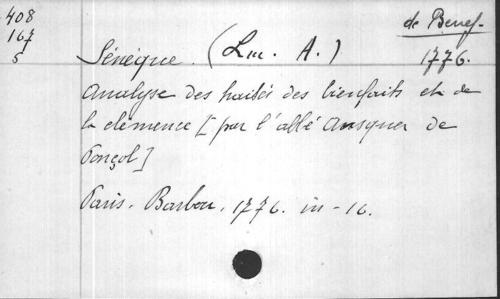 408
167
5
de Benef.
Sénèque. (Luc. A.) 1776.
Analyse des traités des bienfaits et de
la clémence [par l'abbé Ansquer de
Ponçol]
Paris. Barbou, 1776. in-16.